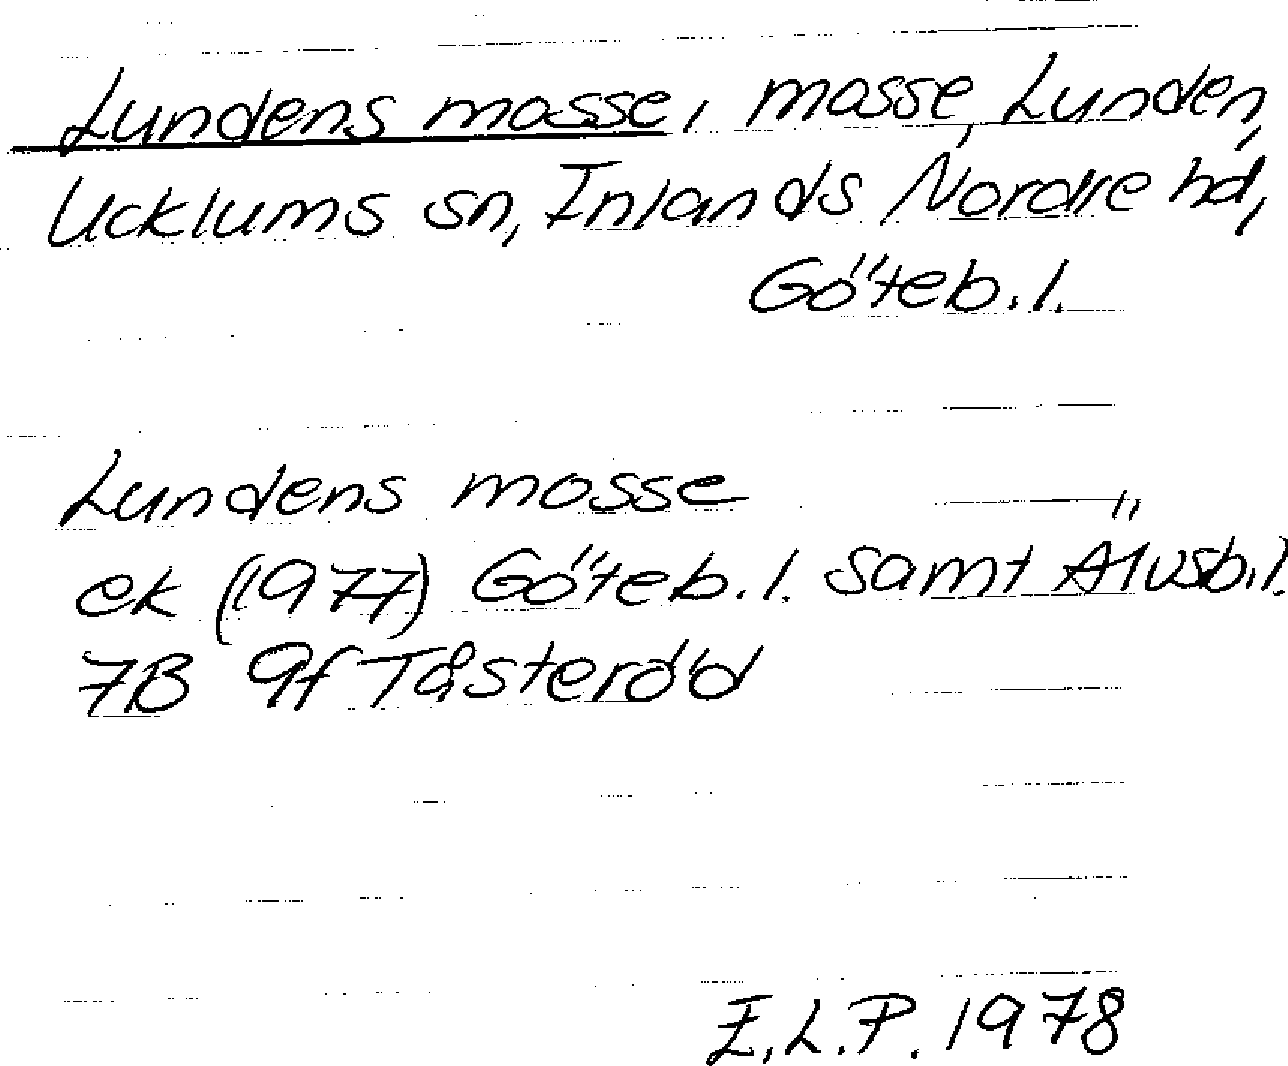 Lundens mosse, mosse, Lunden,
Ucklums sn, Inlands Nordre hd,
Göteb. l.
Lundens mosse
ek (1977) Göteb. l. samt Älvsb. l.
7B 9f Tåsteröd
E.L.P. 1978